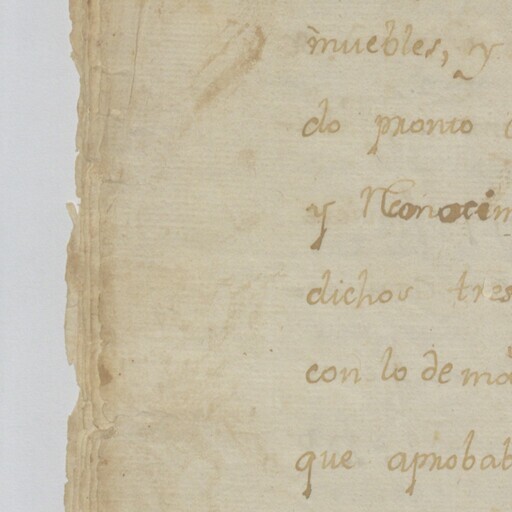 muebles, y
do pronto
y Reconocim
dichos tres
con lo demà
que aprobab